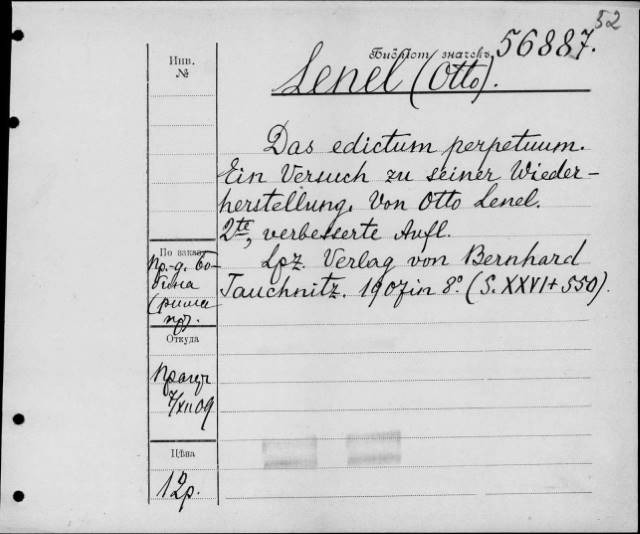 52
Библіот. значекъ 56887.
Инв.
№
Lenel (Otto).
Das edictum perpetuum.
Ein Versuch zu seiner Wieder-
herstellung. Von Otto Lenel.
2te, verbesserte Aufl.
Lpz. Verlag von Bernhard
Tauchnitz. 1907 in 8º. (S. XXVI + 550).
По заказу
пр.-д. Бо-
(римс
Откуда
7/XII 09
Цѣна
12р.